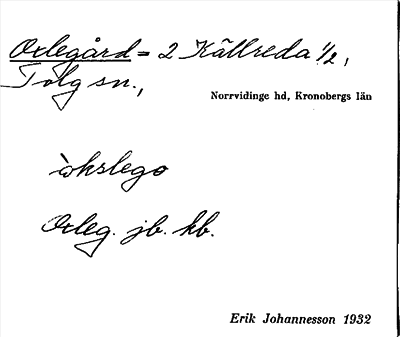 Oxlegård = 2 Källreda 1/2,
Tolg sn.,
Norrvidinge hd, Kronobergs län
òkslego
Oxleg. jb. kb.
Erik Johannesson 1932